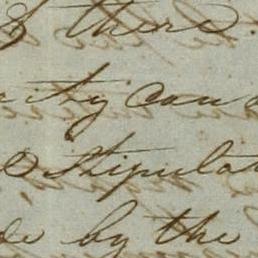 there
ity can
stipulat
de by the